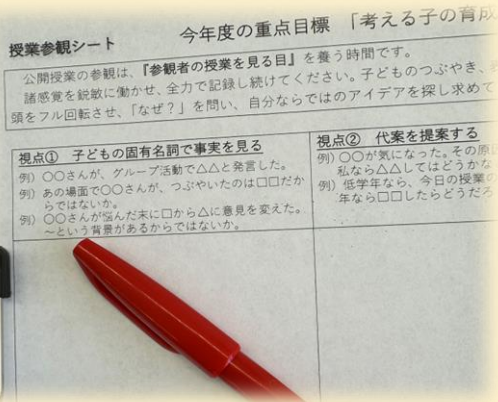 今年度の重点目標 「考える子の育成
授業参観シート
公開授業の参観は、『参観者の授業を見る目』を養う時間です。
諸感覚を鋭敏に働かせ、全力で記録し続けてください。子どものつぶやき、
頭をフル回転させ、「なぜ？」を問い、自分ならではのアイデアを探し求めて
視点① 子どもの固有名詞で事実を見る
例）○○さんが、グループ活動で△△と発言した。
例）あの場面で○○さんが、つぶやいたのは□□だか
らではないか。
例）○○さんが悩んだ末に□から△に意見を変えた。
～という背景があるからではないか。
視点② 代案を提案する
例）○○が気になった。その原
私なら△△してはどうかな
例）低学年なら、今日の授業の
年なら□□したらどうだろ